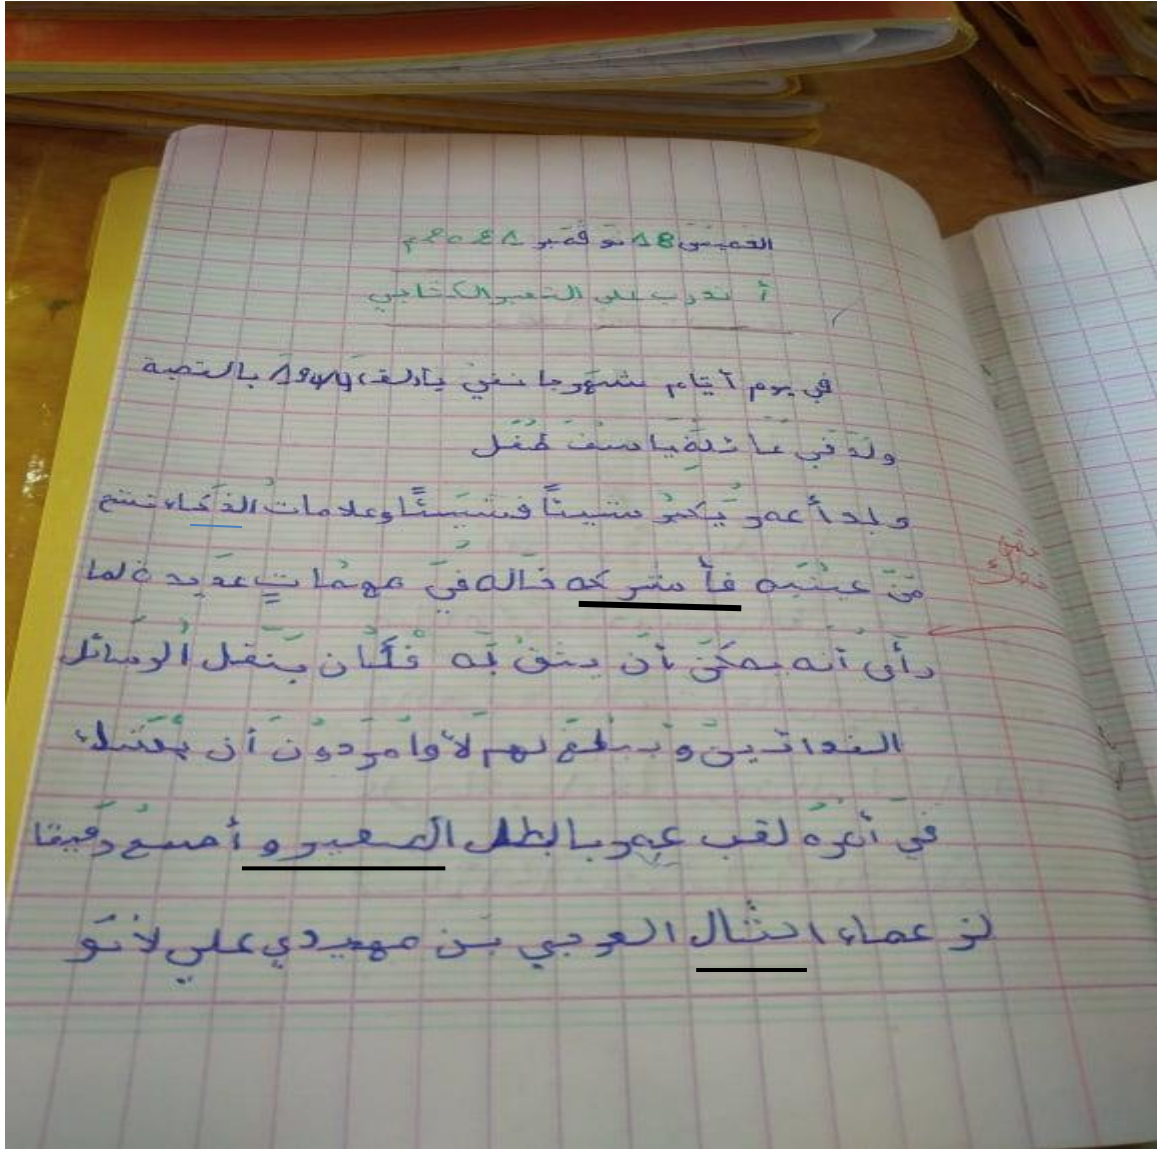 الخميس 18 نوفمبر 2021م
أتدرب على التعبير الكتابي
في يوم أيام شهر جانفي بالقصبة
ولد في عائلة ياسف طفل
و بدأ عمر يكبر شيئاً فشيئاً وعلامات الذكاء تشع
من عينيه فأ شركه خاله في مهمات عديدة لما
رأى أنه يمكن أن يثق به فكان ينقل الرسائل
الفدائين و يطع لهم لأوامر دون أن
في لقب عمر بالبطل الصغير و أصبح رفيقا
لز عماء امثال العربي بن مهيدي علي لابو